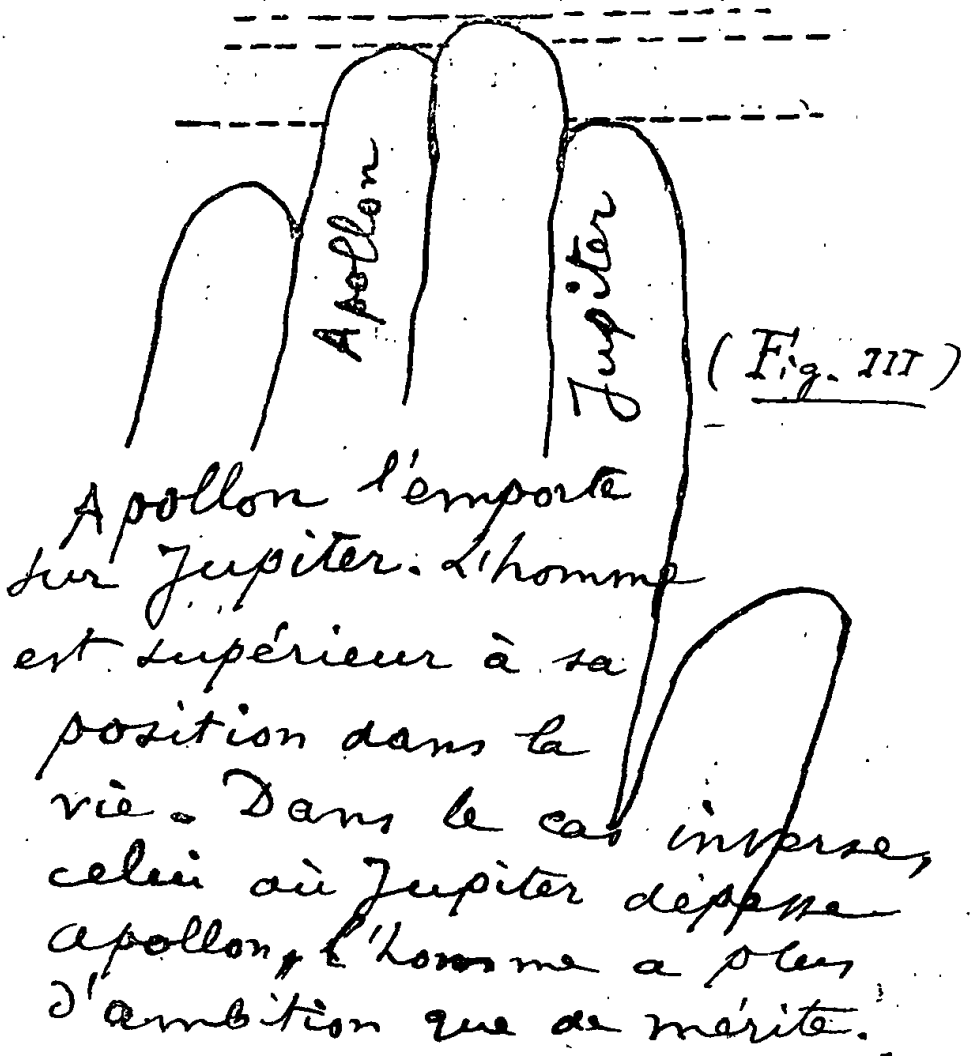 Apollon
Jupiter
(Fig. III)
Apollon l'emporte
sur Jupiter. L'homme
est supérieur à sa
position dans la
vie. Dans le cas inverse,
celui où Jupiter dépasse
Apollon, l'homme a plus
d'ambition que de mérite.